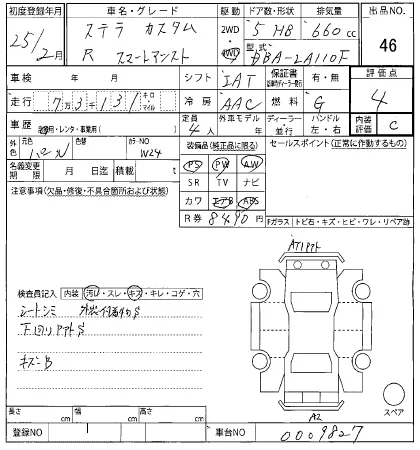 初度登録年月 車名・グレード 駆動 ドア数・形状 排気量 出品NO.
25/2月 ステラ カスタム 2WD・4WD 5 HB 660cc 46
R スマートアシスト 型式 DBA-LA110F
車検 年 月 シフト IAT 保証書 有・無 評価点
走行 7万3千131 キロ マイル 冷房 AAC 燃料 G 4
車歴 自家用・レンタ・事業用( ) 定員 4人 外車モデル 年 ディーラー 並行 ハンドル 左・右 内装評価 C
外色 元色 色替 カラーNO W24 装備品(純正品に限る) セールスポイント(正常に作動するもの)
名義変更期限 月 日迄 積載 t PS PW AW
注意事項(欠品・修復・不具合箇所および状態) SR TV ナビ
カワ エアB ABS
R券 8490円 Fガラス トビ石・キズ・ヒビ・ワレ・リペア跡
検査員記入 内装 汚レ・スレ・キズ・キレ・コゲ・穴
シートシミ
下回り
キズ B
A1
A2
スペア
長さ cm 幅 cm 高さ cm
登録NO 車台NO 0009827